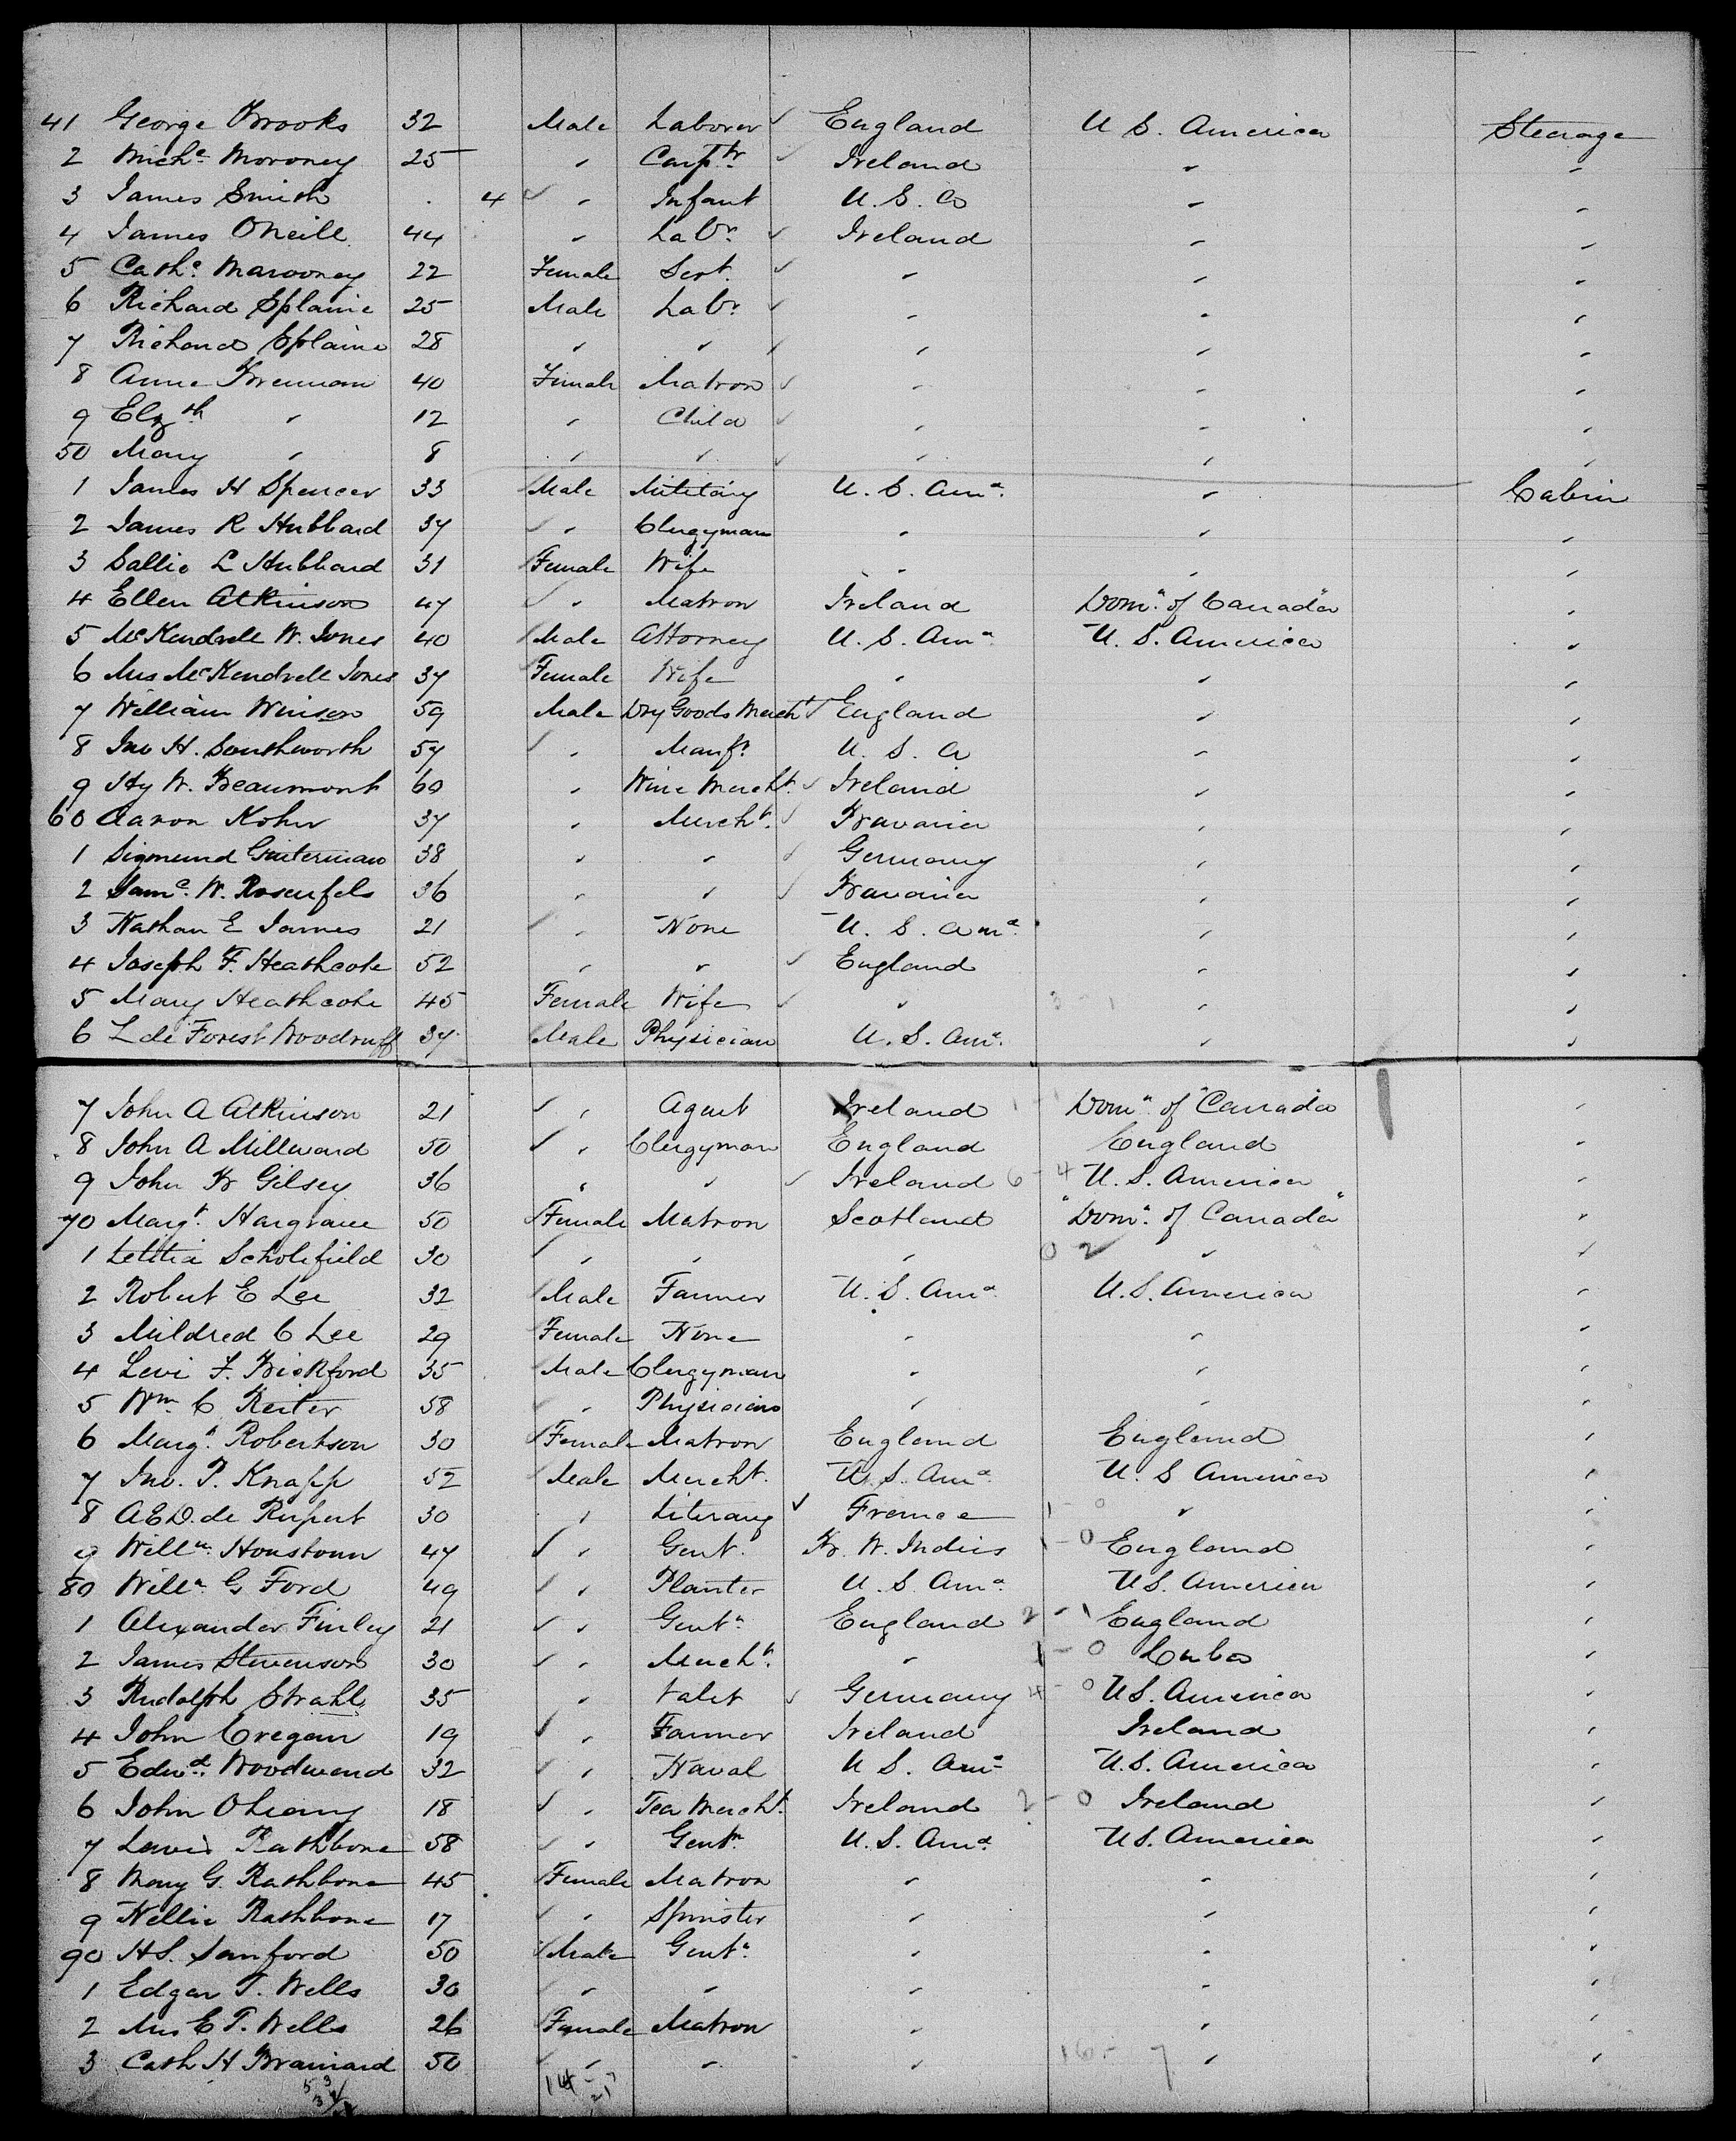 41 George Brooks 32 Male Laborer ✓ England U S. America Steerage
2 Michl Moroney 25 " Carptr ✓ Ireland " "
3 James Smith . 4 ✓ " Infant U. S. A " "
4 James ONeill 44 " Labr ✓ Ireland " "
5 Cathe Marooney 22 Female Sert. ✓ " " "
6 Richard Splaine 25 Male Labr ✓ " " "
7 Richard Splaine 28 " " ✓ " " "
8 Anne Brennan 40 Female Matron ✓ " " "
9 Elzth " 12 " Child ✓ " " "
50 Mary " 8 " " ✓ " " "
1 James H Spencer 33 Male Military U. S. Ama " Cabin
2 James R Hubbard 37 ✓ " Clergyman " " "
3 Sallie L Hubbard 31 Female Wife " " "
4 Ellen Atkinson 47 ✓ " Matron Ireland Domn of Canada "
5 McKendrell W. Jones 40 Male Attorney U. S. Ama U. S. America "
6 Mrs McKendrell Jones 37 Female Wife " " "
7 William Winson 59 Male Dry Goods Mercht ✓ England " "
8 Jno H. Southworth 57 ✓ " Manfr U. S. A " "
9 Hy W. Beaumont 60 " Wine Mercht. ✓ Ireland " "
60 Aaron Kohn 37 " Mercht. ✓ Bavaria " "
1 Sigmund Guterman 38 " " ✓ Germany " "
2 Saml. W. Rosenfels 36 " " ✓ Bavaria " "
3 Nathan E James 21 ✓ " None U. S. Ama " "
4 Joseph F. Heathcote 52 " " ✓ England " "
5 Mary Heathcote 45 Female Wife ✓ " 3 - 1 " "
6 L de Forest Woodruff 37 Male Physician U. S. Ama. " "
7 John A Atkinson 21 ✓ " Agent Ireland 1 - 1 Domn of Canada "
8 John A Millward 50 ✓ " Clergyman England England "
9 John B Gilsey 36 " " ✓ Ireland 6 - 4 U. S. America "
70 Margt. Hargrave 50 Female Matron Scotland "Domn of Canada" "
1 Letitia Scholefield 30 ✓ " " " 0 2 " "
2 Robert E Lee 32 Male Farmer U. S. Ama U. S. America "
3 Mildred C Lee 29 Female None " " "
4 Levi F. Bickford 35 Male Clergyman " " "
5 Wm C Reiter 58 " Physician " " "
6 Margt. Robertson 30 Female Matron England England "
7 Jno. P. Knapp 52 Male Mercht. U. S. Ama U. S America "
8 A E D. de Rupert 30 " Literary ✓ France 1 - 0 " "
9 Willm Houstoun 47 ✓ " Gent. Br. W. Indies 1 - 0 England "
80 Willm G Ford 49 ✓ " Planter U. S. Ama US. America "
1 Alexander Finley 21 ✓ " Gentn England 2 - 1 England "
2 James Stevenson 30 ✓ " Mercht. " 1 - 0 Cuba "
3 Rudolph Strahl 35 " Valet ✓ Germany 4 - 0 US. America "
4 John Cregan 19 ✓ " Farmer Ireland Ireland "
5 Edwd Woodward 32 ✓ " Naval U S. Ama U. S. America "
6 John OLeary 18 ✓ " Tea Mercht. Ireland 2 - 0 Ireland "
7 Lewis Rathbone 58 ✓ " Gentn U. S. Ama US. America "
8 Mary G. Rathbone 45 Female Matron " " "
9 Nellie Rathbone 17 ✓ " Spinster " " "
90 H S. Sanford 50 Male Gentn " " "
1 Edgar T. Wells 30 " " " " "
2 Mrs E T. Wells 26 Female Matron " " "
3 Cath H Brainard 50 ✓ " " " 16 - 7 " "